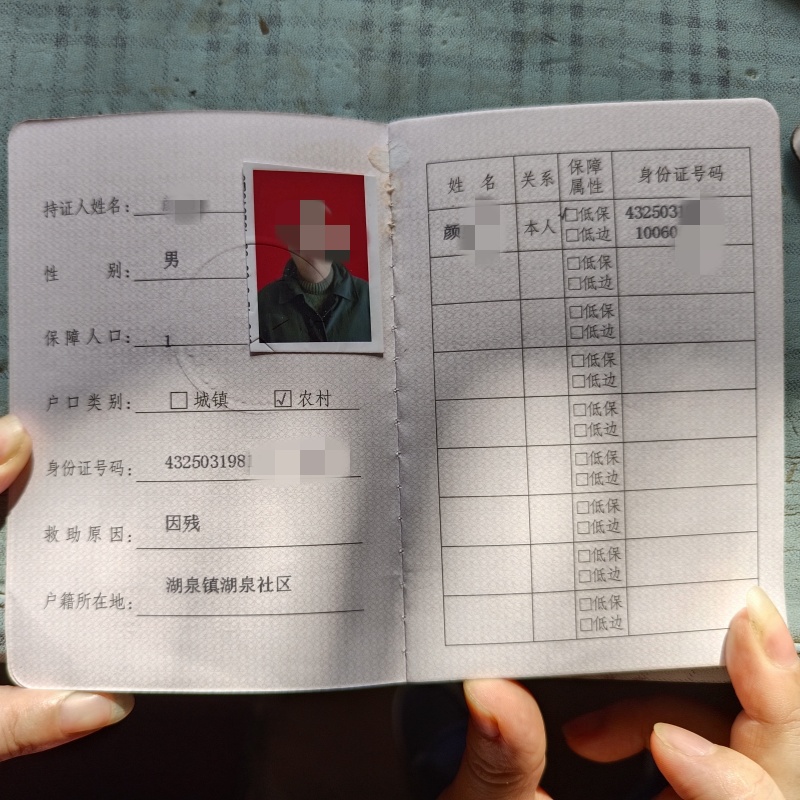 持证人姓名:
性 别: 男
保障人口: 1
户口类别: □城镇 ☑农村
身份证号码: 432503198
救助原因: 因残
户籍所在地: 湖泉镇湖泉社区
姓 名 关系 保障属性 身份证号码
颜 本人 ☑低保 4325031
□低边 10060
□低保
□低边
□低保
□低边
□低保
□低边
□低保
□低边
□低保
□低边
□低保
□低边
□低保
□低边
□低保
□低边